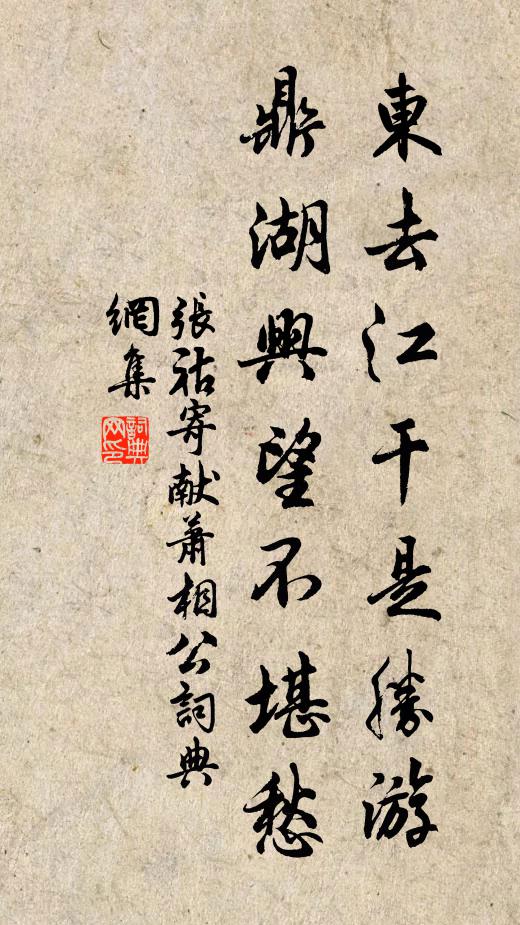 東去江干是勝游
鼎湖興望不堪愁
張祜寄献蕭相公詞典
網集
詞典网印